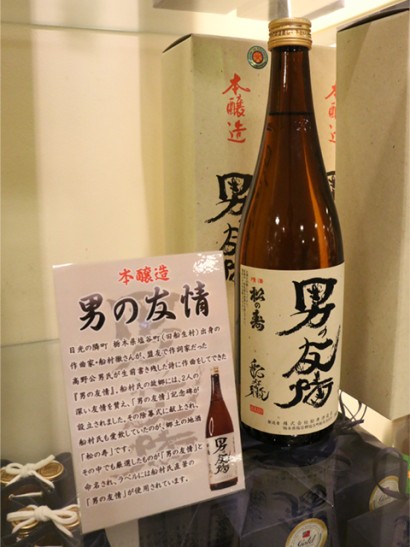 本醸造
男の友情
日光の隣町 栃木県塩谷町(旧船生村)出身の
作曲家・船村徹さんが、盟友で作詞家だった
高野公男氏が生前書き残した詩に作曲をしてできた
『男の友情』。船村氏の故郷には、2人の
深い友情を賛え、『男の友情』記念碑が
設立されました。その除幕式に献上され、
船村氏も愛飲していたのが、郷土の地酒
「松の寿」です。
その中でも厳選したものが「男の友情」と
命名され、ラベルには船村氏直筆の
「男の友情」が使用されています。
男の友情
本醸造
男の友情
松の寿
男の友情